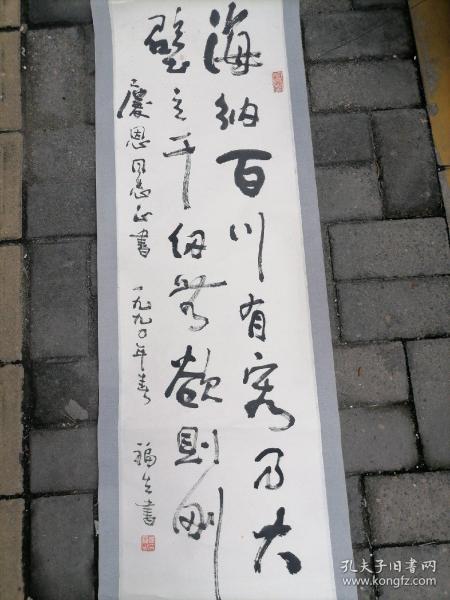 海纳百川有容乃大
壁立千仞无欲则刚
庆恩同志正书 一九九〇年春 福生书
孔夫子旧书网
www.kongfz.com